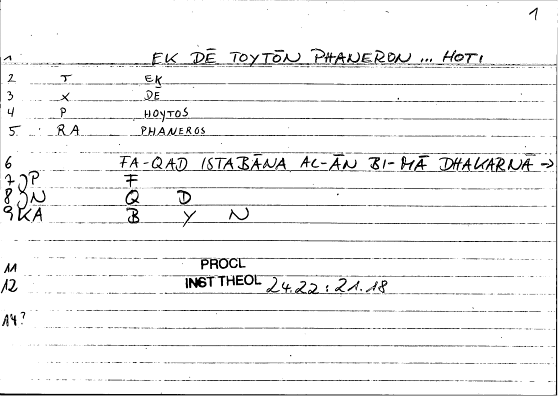 1
1 EK DĒ TOYTŌN PHANERON ... HOTI
2 T EK
3 X DĒ
4 P HOYTOS
5 RA PHANEROS
6 FA-QAD ISTABĀNA AL-ĀN BI-MĀ DHAKARNĀ →
7 P F
8 N Q D
9 KA B Y N
11 PROCL
12 INST THEOL 24.22 : 21.18
14?